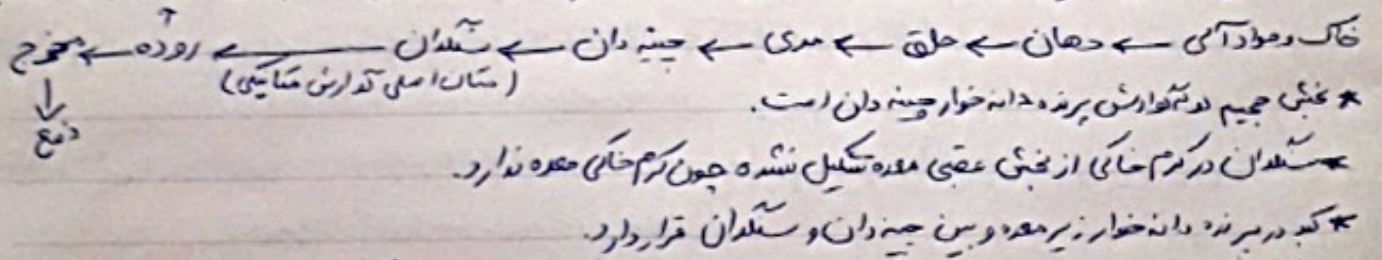 خاک و مواد آلی ← دهان ← حلق ← مری ← چینه دان ← سنگدان ← روده ← مخرج
(مکان اصلی گوارش مکانیکی)
↓
دفع
* بخش حجیم لوله گوارش پرنده دانه خوار چینه دان است.
* سنگدان در کرم خاکی از بخش عقبی معده تشکیل نشده چون کرم خاکی معده ندارد.
* کبد در پرنده دانه خوار زیر معده و بین چینه دان و سنگدان قرار دارد.